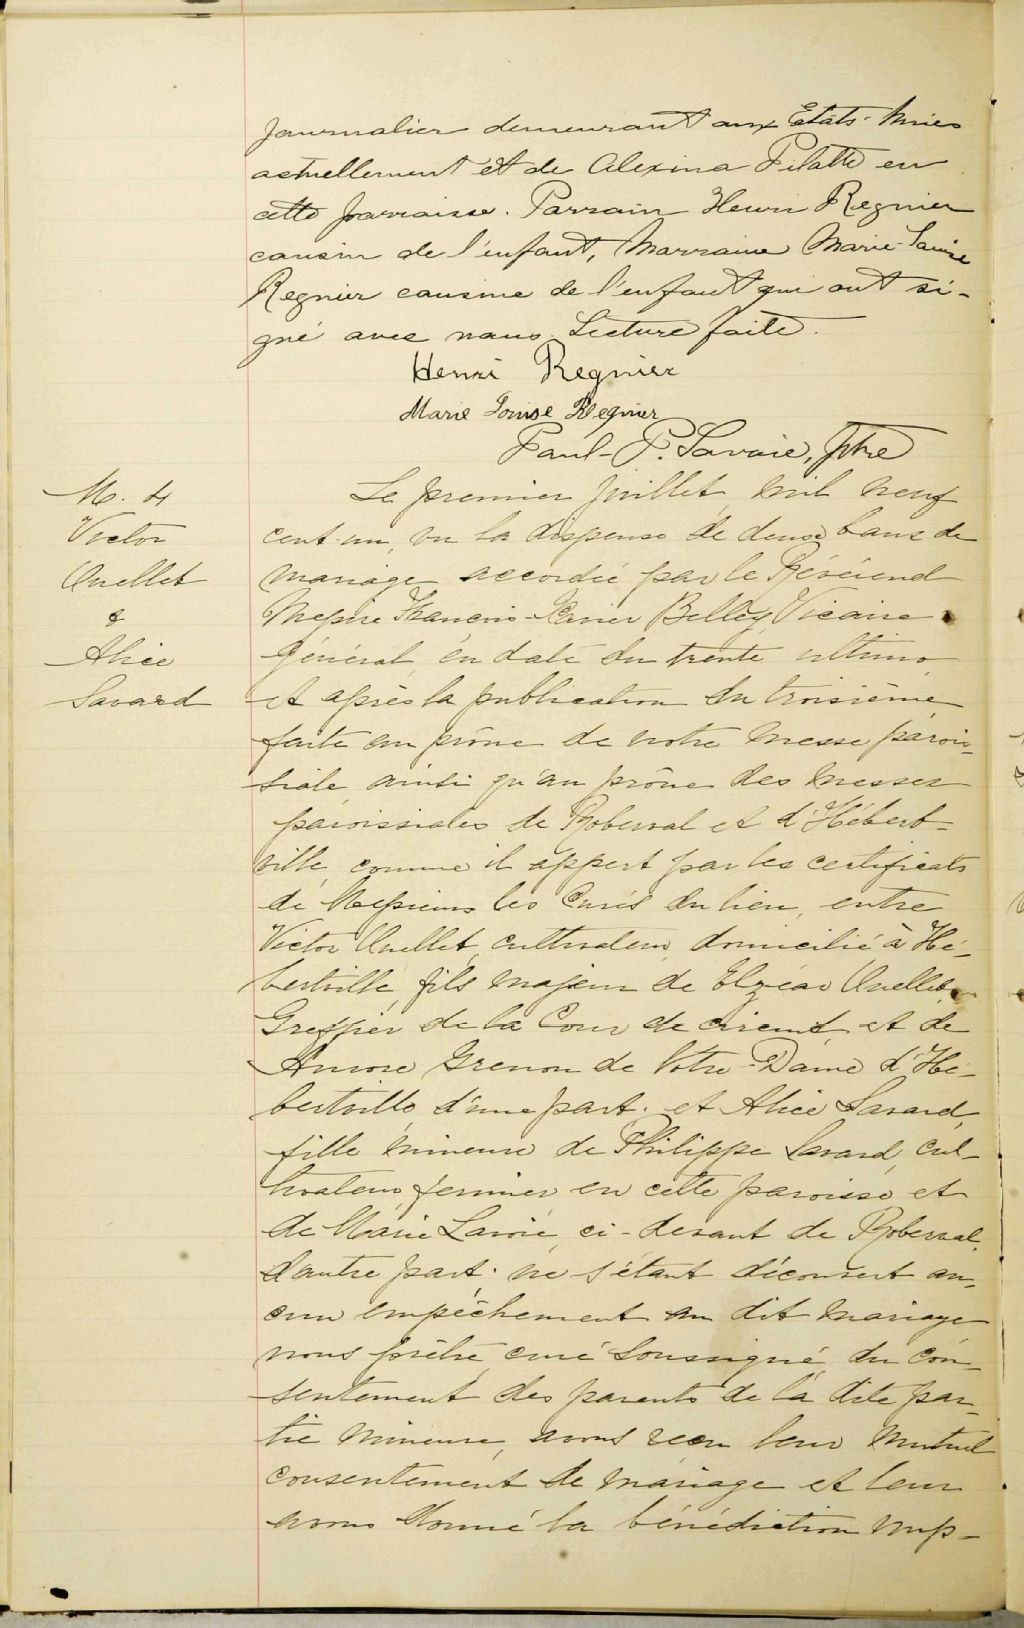 journalier demeurant aux Etats-Unies
actuellement et de Alexina Pilotte en
cette parraisse. Parrain Henri Regnier
cousin de l'enfant, Marraine Marie-Louise
Regnier cousine de l'enfant qui ont si-
gné avec nous. Lecture faite.
Henri Regnier
Marie Louise Regnier
Paul-P. Savoie, ptre
M. 4
Victor
Ouellet
&
Alice
Savard
Le premier juillet, mil neuf
cent-un, vu la dispense de deux bans de
mariage accordée par le Révérend
Messire François-Xavier Belley Vicaire
Général, en date du trente ultimo
et après la publication du troisième
faite au prône de notre messe parois-
siale ainsi qu'au prône des messes
paroissiales de Roberval et d'Hébert-
ville, comme il appert par les certificats
de Messieurs les Curés du lieu, entre
Victor Ouellet, cultivateur, domicilié à Hé-
bertville, fils majeur de Elzéar Ouellet
Greffier de la Cour de circuit, et de
Aurore Grenon de Notre-Dame d'Hé-
bertville d'une part. et Alice Savard,
fille mineure de Philippe Savard, cul-
tivateur fermier en cette paroisse, et
de Marie Lavoie, ci-devant de Roberval,
d'autre part. ne s'étant découvert au-
cun empêchement au dit mariage
nous prêtre, curé soussigné, du con-
sentement des parents de la dite par-
tie mineure, avons reçu leur mutuel
consentement de mariage et leur
avons donné la bénédiction nup-